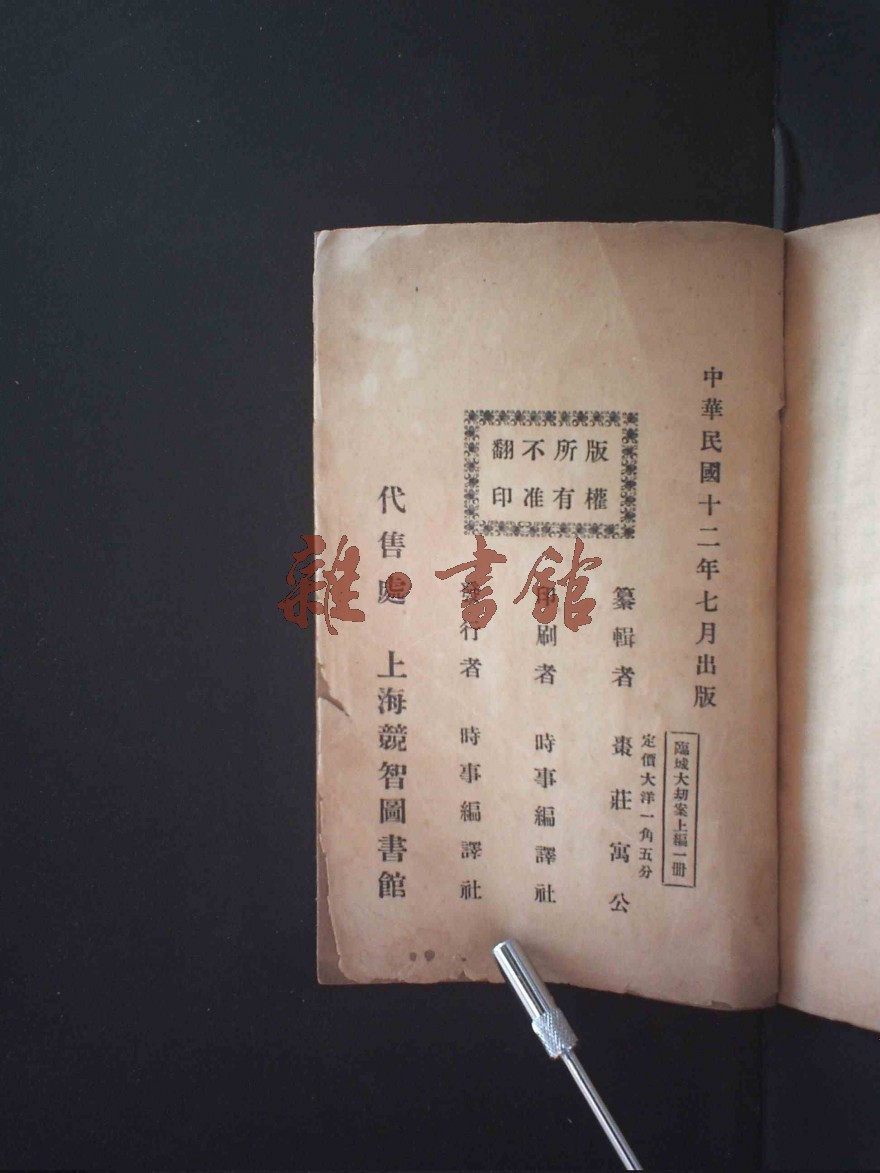 中華民國十二年七月出版
臨城大刧案上編一册
定價大洋一角五分
版權
所有
不准
翻印
纂輯者 棗莊寓公
印刷者 時事編譯社
發行者 時事編譯社
代售處 上海競智圖書館
雜·書館